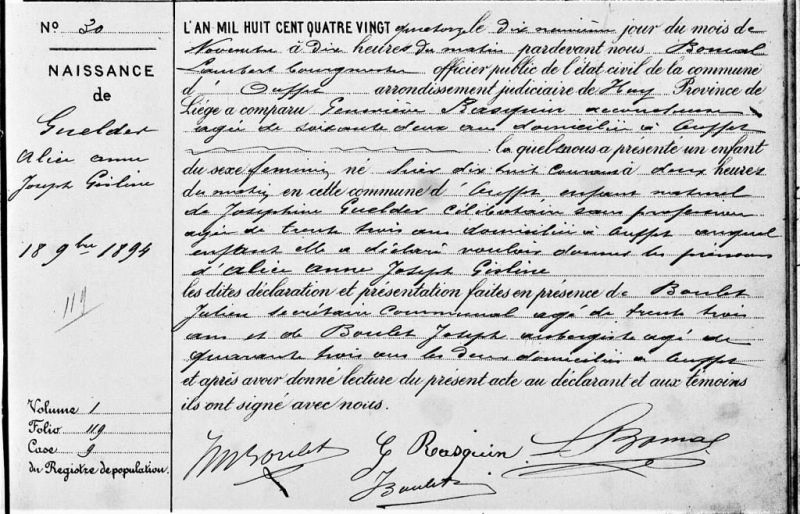 N° 30
NAISSANCE
de
Guelder
Alice Anne
Joseph Gisline
18 9bre 1894
119
Volume 1
Folio 119
Case 9
du Registre de population.
L'AN MIL HUIT CENT QUATRE VINGT quatorze le dix neuvième jour du mois de
Novembre à dix heures du matin pardevant nous Bomal
Lambert bourgmestre officier public de l'état civil de la commune
d' Ouffet arrondissement judiciaire de Huy Province de
Liége a comparu Geneviève Rasquin accoucheuse
agée de soixante deux ans domiciliée à Ouffet
laquelle nous a présenté un enfant
du sexe féminin né hier dix huit courant à deux heures
du matin en cette commune d' Ouffet enfant naturel
de Joséphine Guelder célibataire sans profession
agée de trente trois ans domiciliée à Ouffet auquel
enfant elle a déclaré vouloir donner les prénoms
d'Alice Anne Joseph Gisline
les dites déclaration et présentation faites en présence de Boulet
Julien secrétaire communal agé de trente trois
ans et de Boulet Joseph aubergiste agé de
quarante trois ans les deux domiciliés à Ouffet
et après avoir donné lecture du présent acte au déclarant et aux témoins
ils ont signé avec nous.
Boulet G Rasquin L Bomal
J Boulet